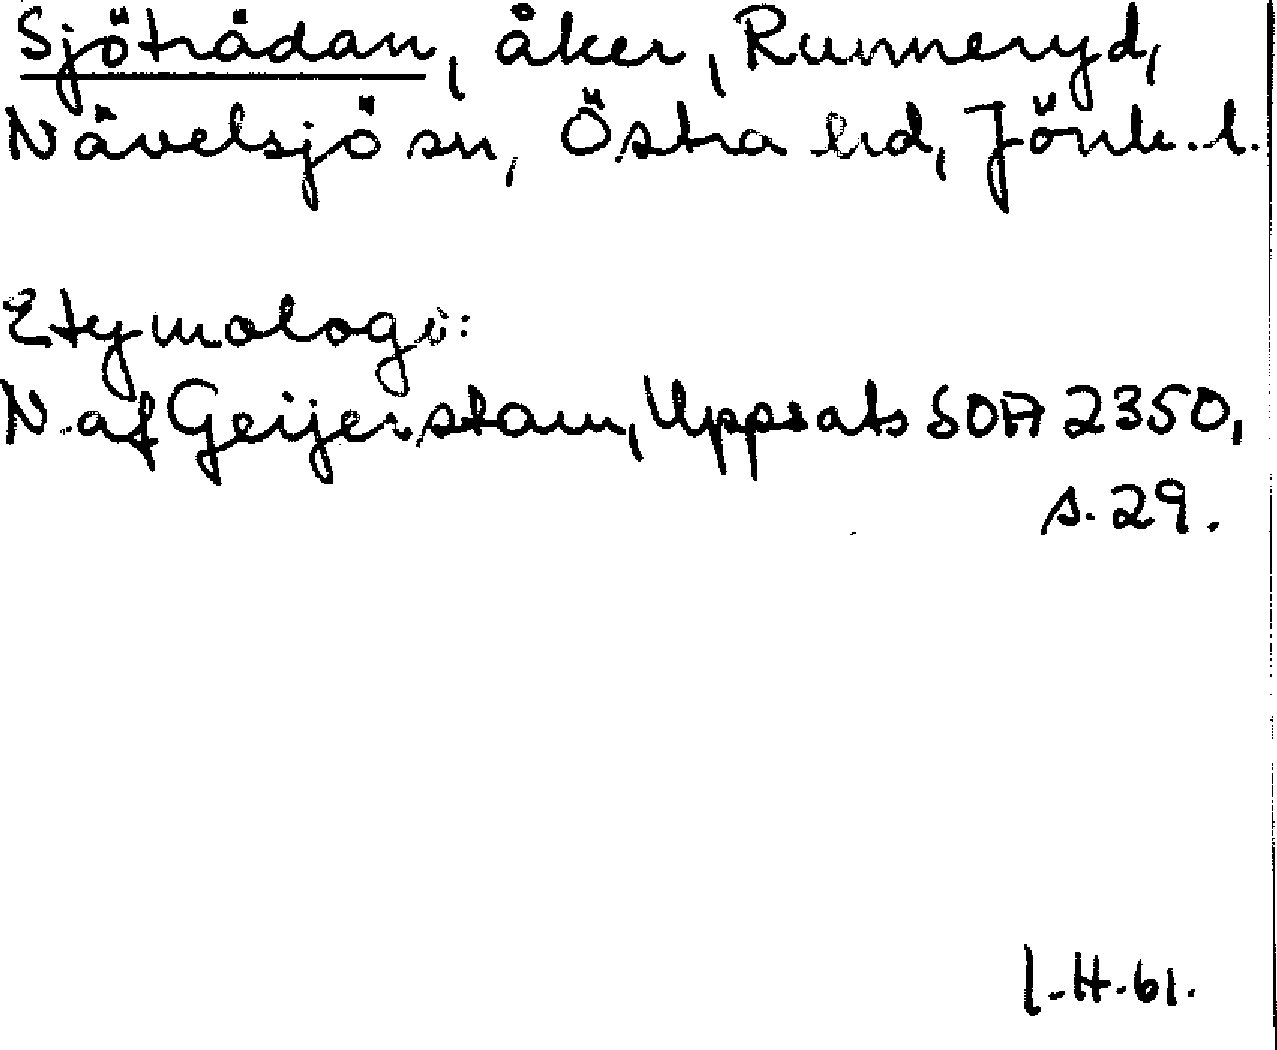 Sjöträdan, åker, Runneryd,
Nävelsjö sn, Östra hd, Jönk. l.
Etymologi:
N. af Geijerstam, Uppsats SOA 2350,
s. 29.
I.H. 61.